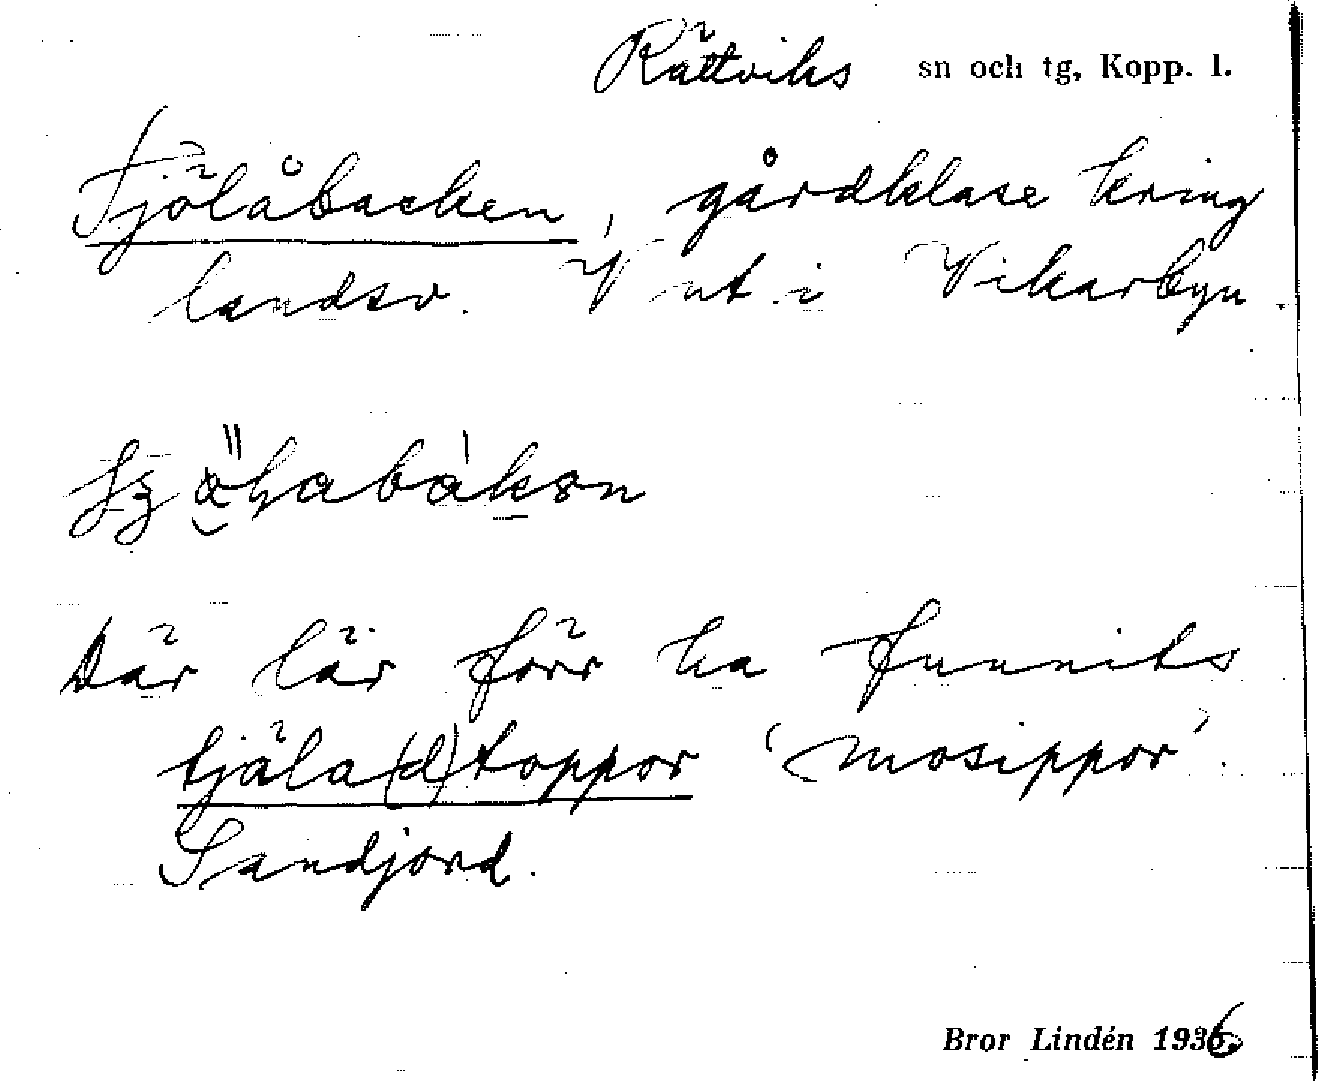 Rättviks sn och tg, Kopp. l.
Tjölåbacken, gårdklase kring
landsv. V ut i Vikarbyn.
Där lär förr ha funnits
tjäla(d)toppor 'mosippor'.
Sandjord.
Bror Lindén 1936.